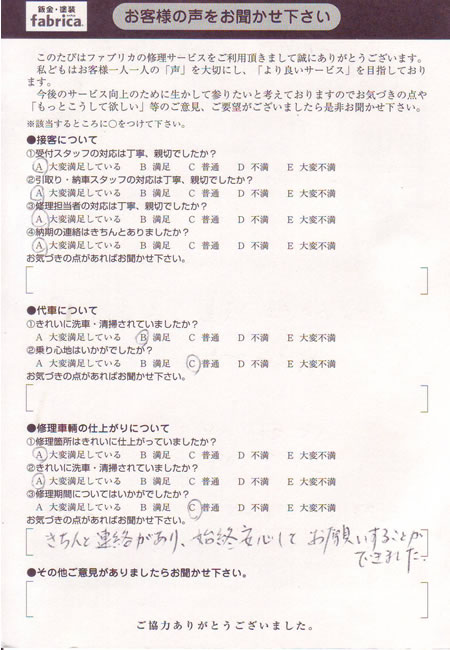 鈑金・塗装
fabrica.
お客様の声をお聞かせ下さい
このたびはファブリカの修理サービスをご利用頂きまして誠にありがとうございます。
私どもはお客様一人一人の「声」を大切にし、「より良いサービス」を目指しており
ます。
今後のサービス向上のために生かして参りたいと考えておりますのでお気づきの点や
「もっとこうして欲しい」等のご意見、ご要望がございましたら是非お聞かせ下さい。
※該当するところに○をつけて下さい。
●接客について
①受付スタッフの対応は丁寧、親切でしたか?
A 大変満足している B 満足 C 普通 D 不満 E 大変不満
②引取り・納車スタッフの対応は丁寧、親切でしたか?
A 大変満足している B 満足 C 普通 D 不満 E 大変不満
③修理担当者の対応は丁寧、親切でしたか?
A 大変満足している B 満足 C 普通 D 不満 E 大変不満
④納期の連絡はきちんとありましたか?
A 大変満足している B 満足 C 普通 D 不満 E 大変不満
お気づきの点があればお聞かせ下さい。
●代車について
①きれいに洗車・清掃されていましたか?
A 大変満足している B 満足 C 普通 D 不満 E 大変不満
②乗り心地はいかがでしたか?
A 大変満足している B 満足 C 普通 D 不満 E 大変不満
お気づきの点があればお聞かせ下さい。
●修理車輌の仕上がりについて
①修理箇所はきれいに仕上がっていましたか?
A 大変満足している B 満足 C 普通 D 不満 E 大変不満
②きれいに洗車・清掃されていましたか?
A 大変満足している B 満足 C 普通 D 不満 E 大変不満
③修理期間についてはいかがでしたか?
A 大変満足している B 満足 C 普通 D 不満 E 大変不満
お気づきの点があればお聞かせ下さい。
きちんと連絡があり、始終安心して お願いすることが
できました。
●その他ご意見がありましたらお聞かせ下さい。
ご協力ありがとうございました。